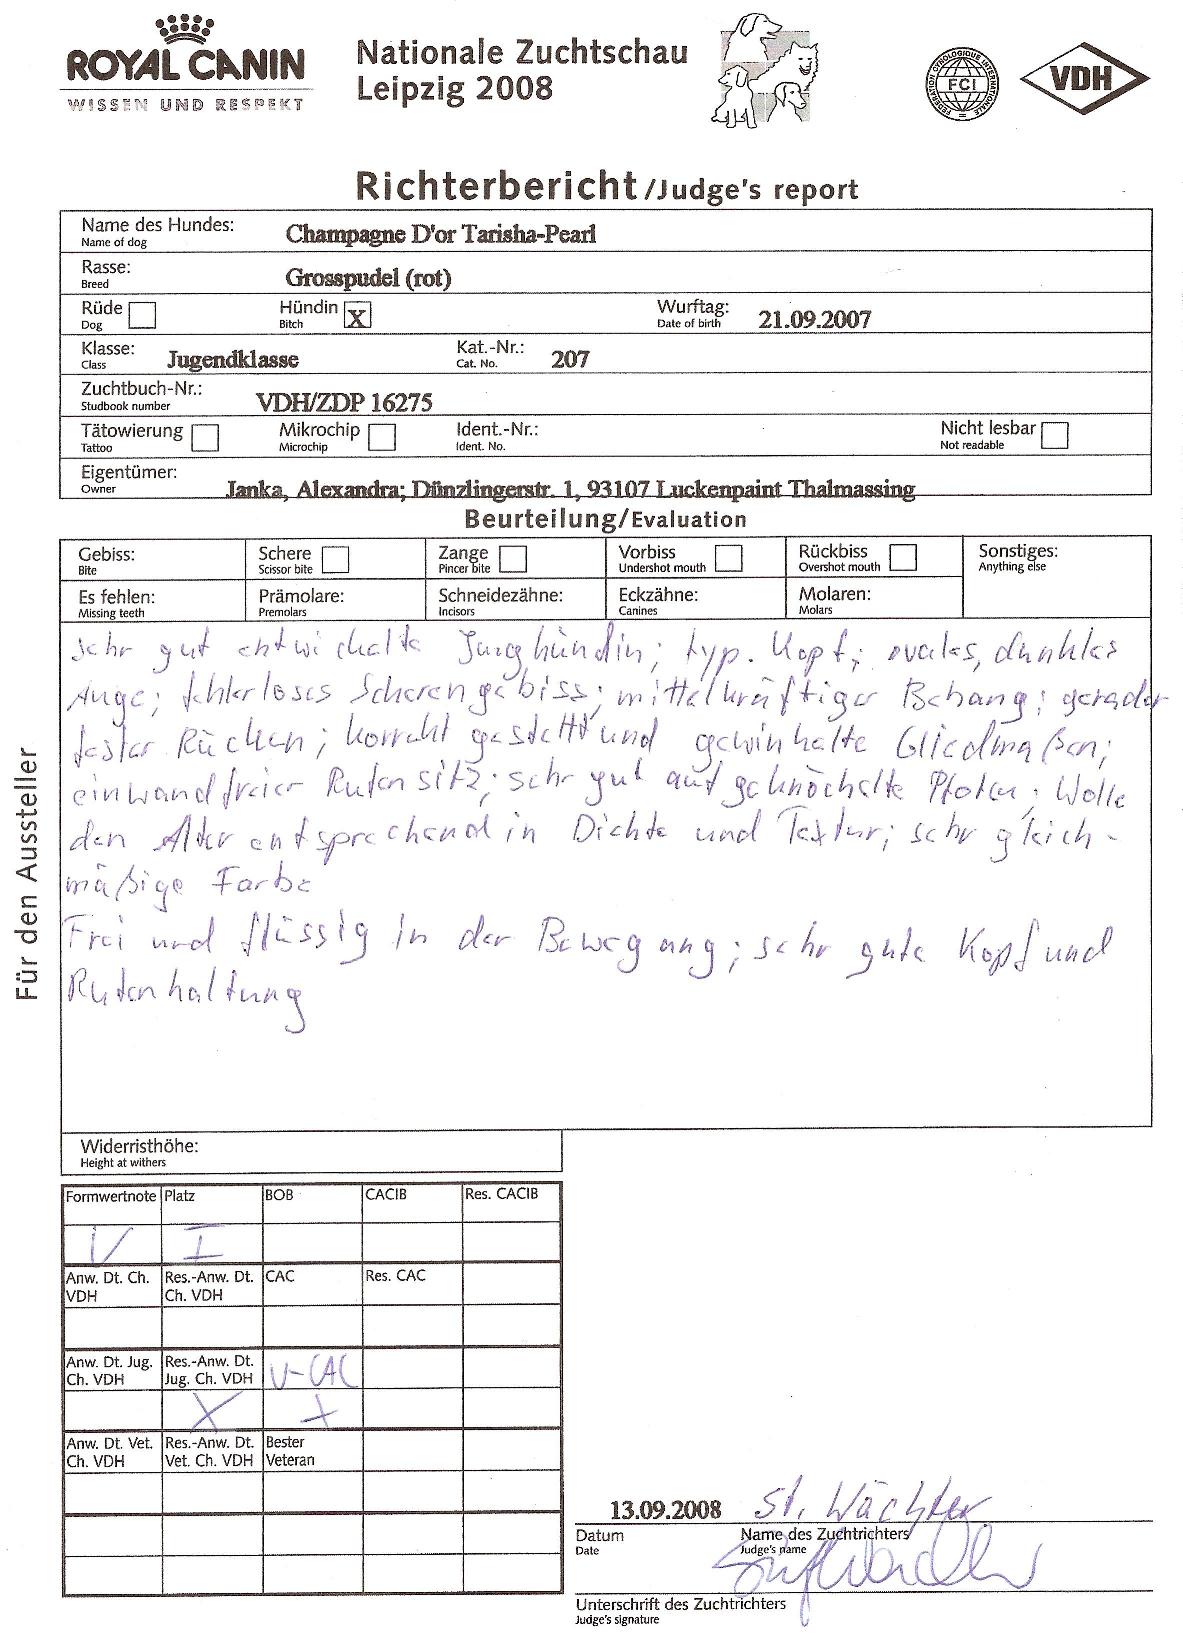 ROYAL CANIN
WISSEN UND RESPEKT
Nationale Zuchtschau
Leipzig 2008
FEDERATION CYNOLOGIQUE INTERNATIONALE
FCI
VDH
Richterbericht/Judge's report
Name des Hundes: Champagne D'or Tarisha-Pearl
Name of dog
Rasse: Grosspudel (rot)
Breed
Rüde Hündin X Wurftag: 21.09.2007
Dog Bitch Date of birth
Klasse: Jugendklasse Kat.-Nr.: 207
Class Cat. No.
Zuchtbuch-Nr.: VDH/ZDP 16275
Studbook number
Tätowierung Mikrochip Ident.-Nr.: Nicht lesbar
Tattoo Microchip Ident. No. Not readable
Eigentümer: Janka, Alexandra; Dünzlingerstr. 1, 93107 Luckenpaint Thalmassing
Owner
Beurteilung/Evaluation
Gebiss: Schere Zange Vorbiss Rückbiss Sonstiges:
Bite Scissor bite Pincer bite Undershot mouth Overshot mouth Anything else
Es fehlen: Prämolare: Schneidezähne: Eckzähne: Molaren:
Missing teeth Premolars Incisors Canines Molars
sehr gut entwickelte Junghündin; typ. Kopf; ovales, dunkles
Auge; fehlerloses Scherengebiss; mittelkräftiger Behang; gerader
fester Rücken; korrekt gestellt und gewinkelte Gliedmaßen;
einwandfreier Rutensitz; sehr gut aufgeknöchelte Pfoten; Wolle
den Alter entsprechend in Dichte und Textur; sehr gleich-
mäßige Farbe
Frei und flüssig in der Bewegung; sehr gute Kopf und
Rutenhaltung
Für den Aussteller
Widerristhöhe:
Height at withers
Formwertnote Platz BOB CACIB Res. CACIB
V I
Anw. Dt. Ch. Res.-Anw. Dt. CAC Res. CAC
VDH Ch. VDH
Anw. Dt. Jug. Res.-Anw. Dt. V-CAC
Ch. VDH Jug. Ch. VDH
X +
Anw. Dt. Vet. Res.-Anw. Dt. Bester
Ch. VDH Vet. Ch. VDH Veteran
13.09.2008 St. Wächter
Datum Name des Zuchtrichters
Date Judge's name
Unterschrift des Zuchtrichters
Judge's signature